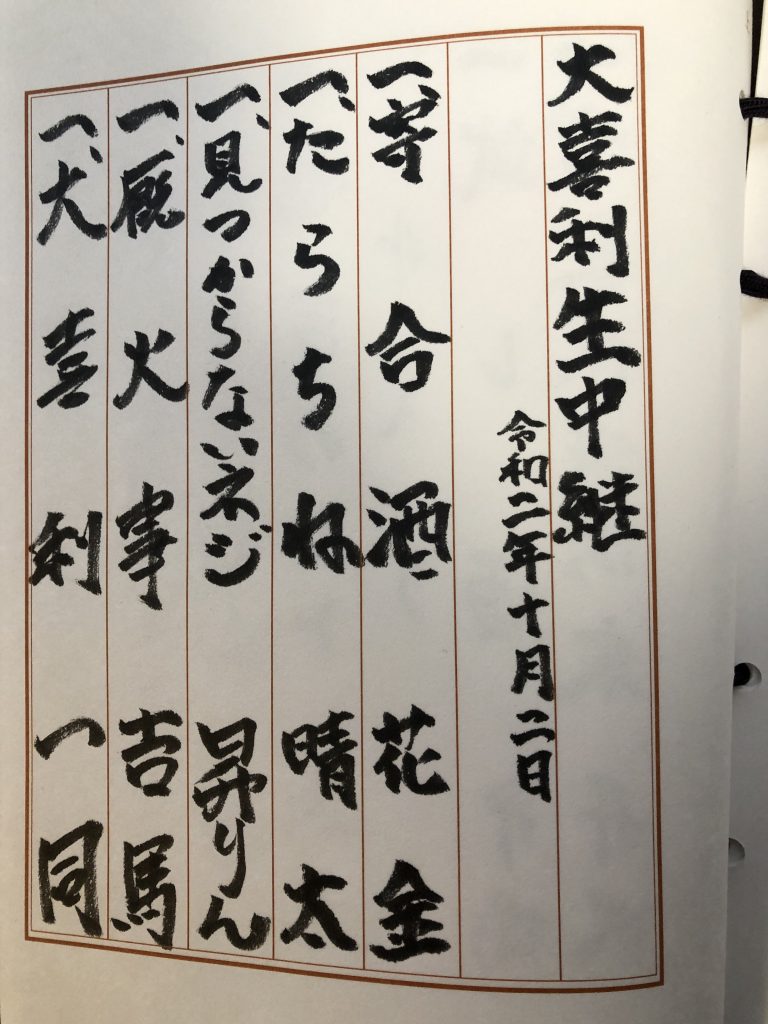 大喜利生中継
令和二年十月二日
一、寄合酒 花金
一、たらちね 晴太
一、見つからないネジ 昇りん
一、厩火事 吉馬
一、大喜利 一同